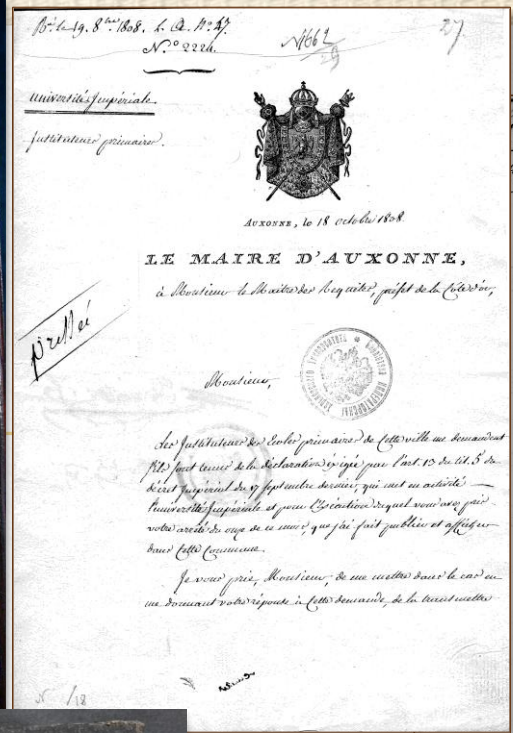 Rç. le 19. 8bre 1808. L. A. N° 47.
N.° 2224.
N1662
29
27
Université Impériale
Instituteurs primaires.
AUXONNE, le 18 octobre 1808.
LE MAIRE D'AUXONNE,
à Monsieur le Maitre des Requêtes, préfet de la Côte d'or,
pressée
Monsieur,
Les Instituteurs des Ecoles primaires de Cette ville me demandent
s'ils sont tenus de la déclaration éxigée par l'art. 13 du tit. 5 du
décret Impérial du 17 septembre dernier, qui met en activité
l'université Impériale et pour l'Exécution duquel vous avez pris
votre arrêté du onze de ce mois, que j'ai fait publier et afficher
dans Cette Commune.
Je vous prie, Monsieur, de me mettre dans le cas en
me donnant votre réponse à Cette demande, de la transmettre
/18